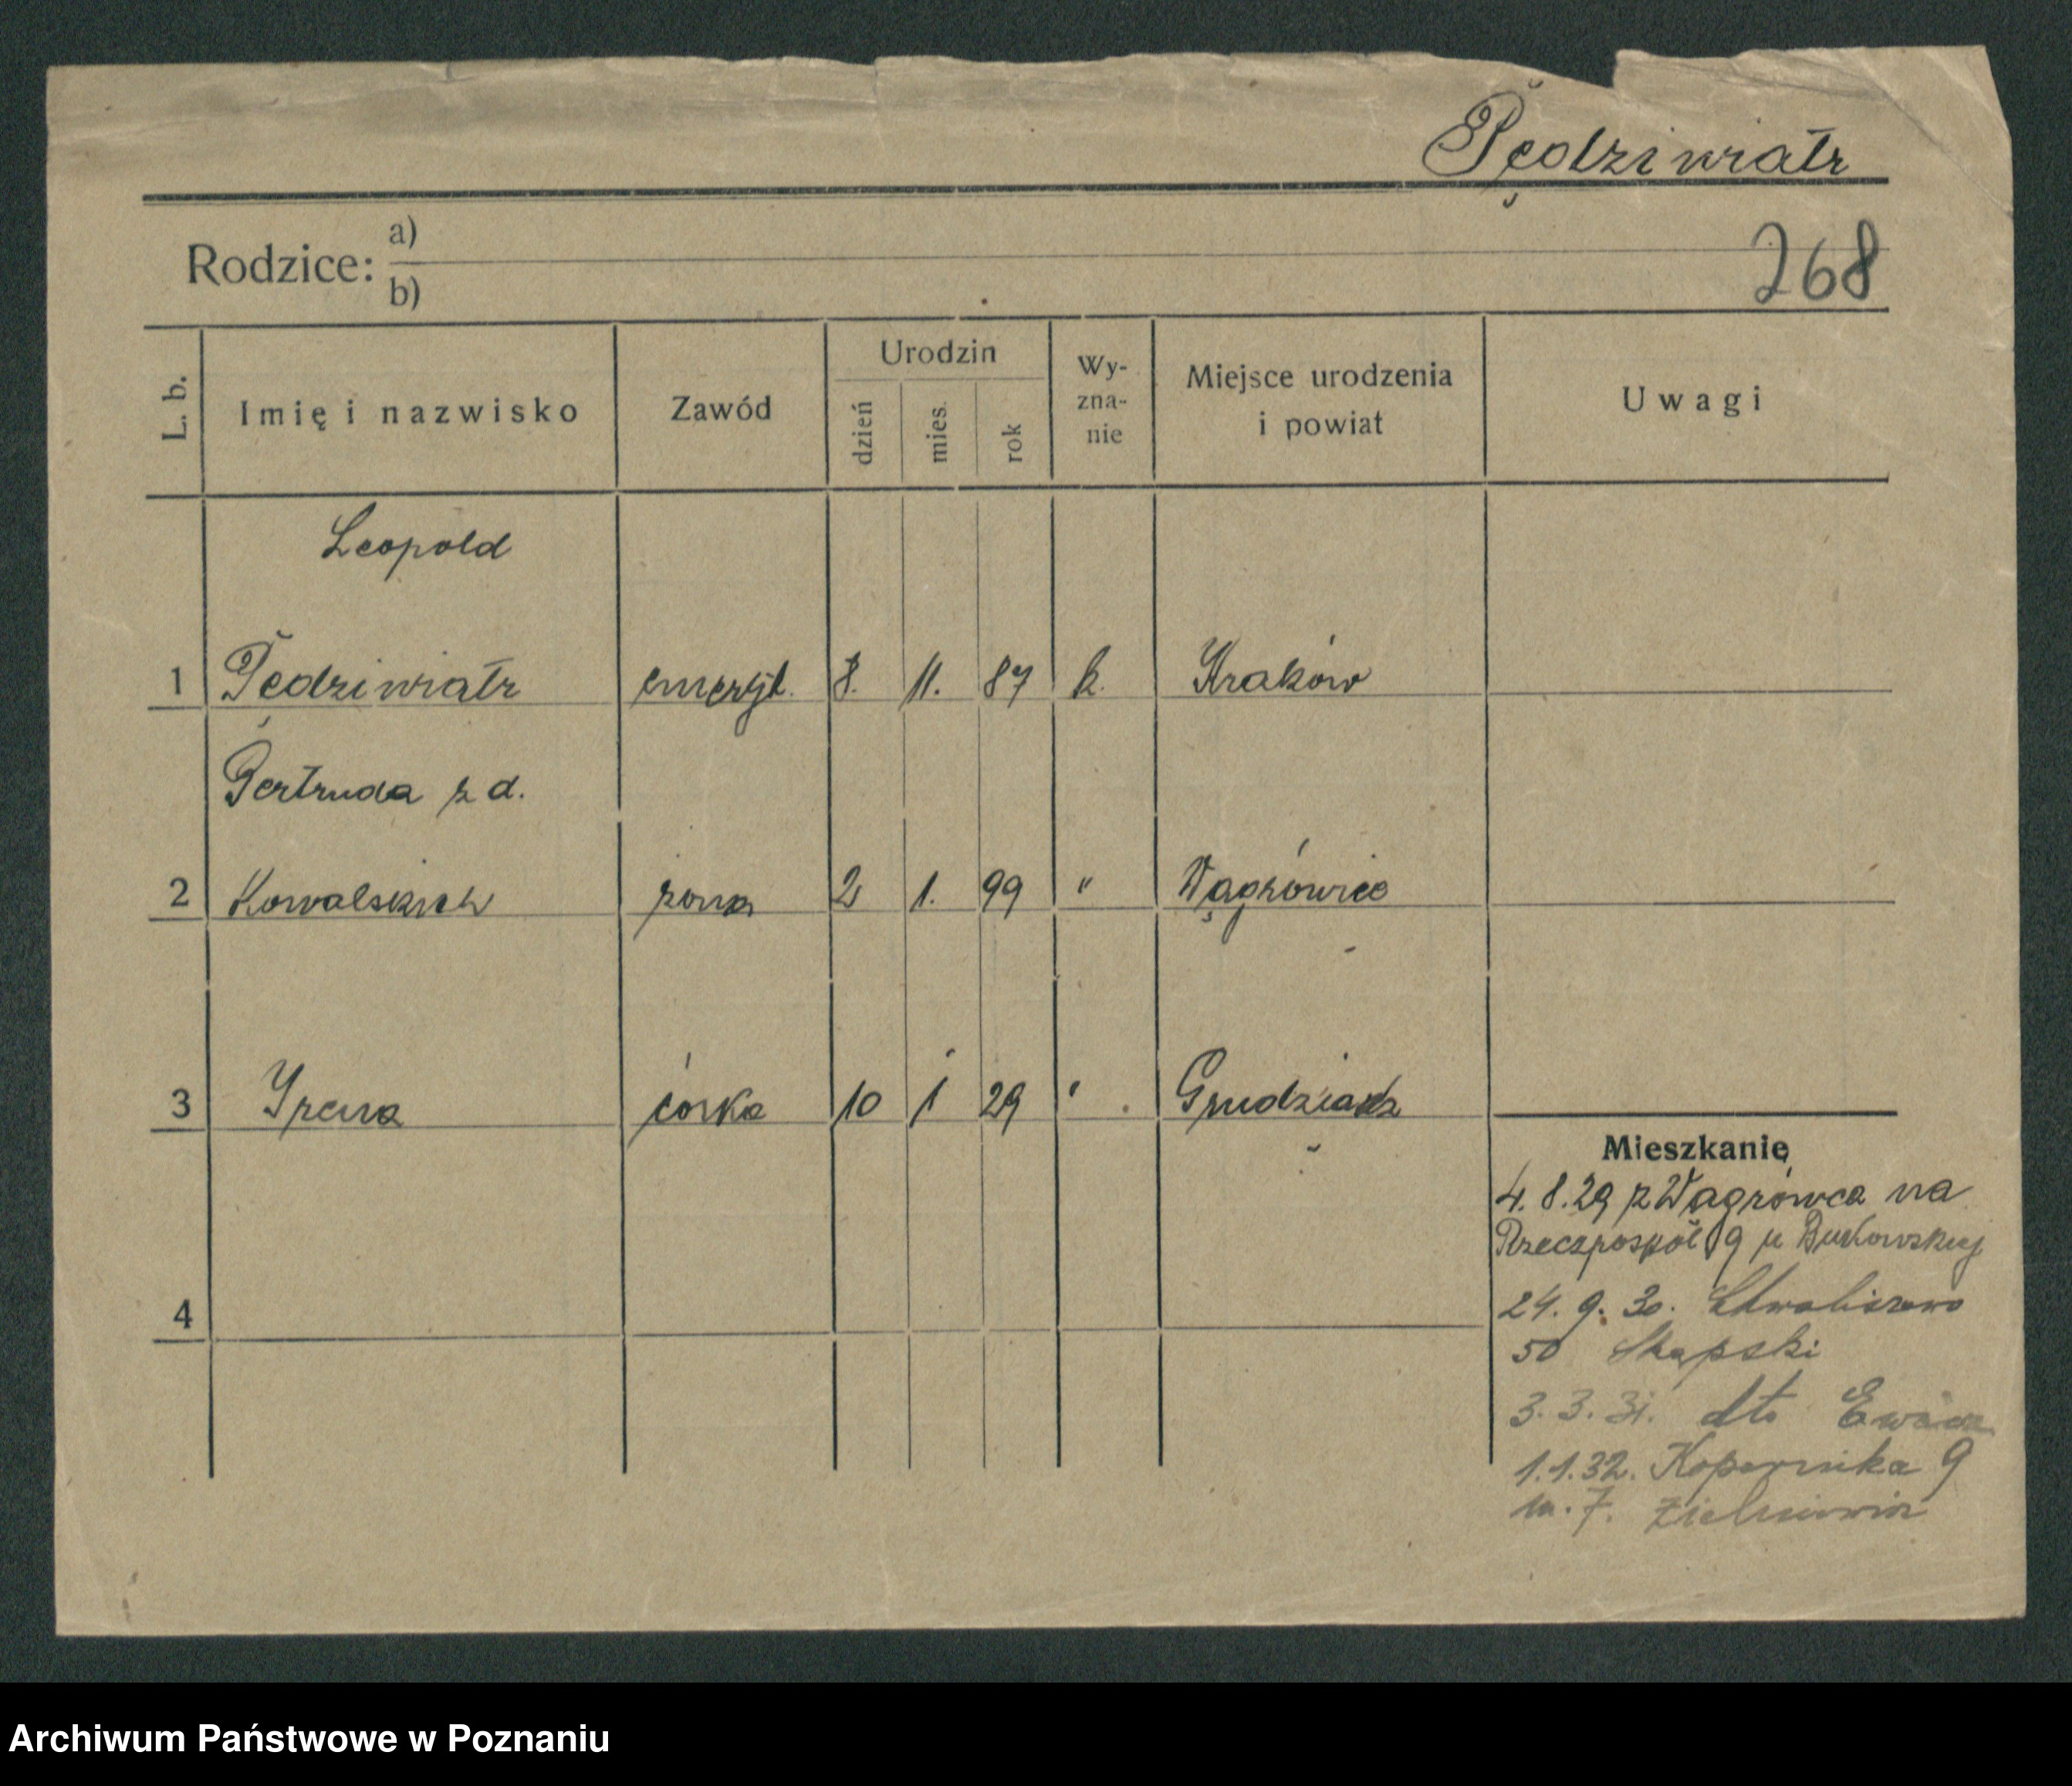 Pędziwiatr
Rodzice: a)
b)
268
L. b.
Imię i nazwisko
Zawód
Urodzin
dzień
mies.
rok
Wy-
zna-
nie
Miejsce urodzenia
i powiat
Uwagi
Leopold
1 Pędziwiatr emeryt. 8. 11. 87 k. Kraków
Gertruda z d.
2 Kowalskich żona 2 1. 99 " Wągrówiec
3 Irena córka 10 1 29 " Grudziądz
4
Mieszkanie
4. 8. 29 z Wągrówca na
Rzeczpospol 9 u Burkowskiej
24. 9. 30. Chwaliszewo
50 Skąpski
3. 3. 31. dto
1.1.32. Kopernika 9
m. 7.
Archiwum Państwowe w Poznaniu